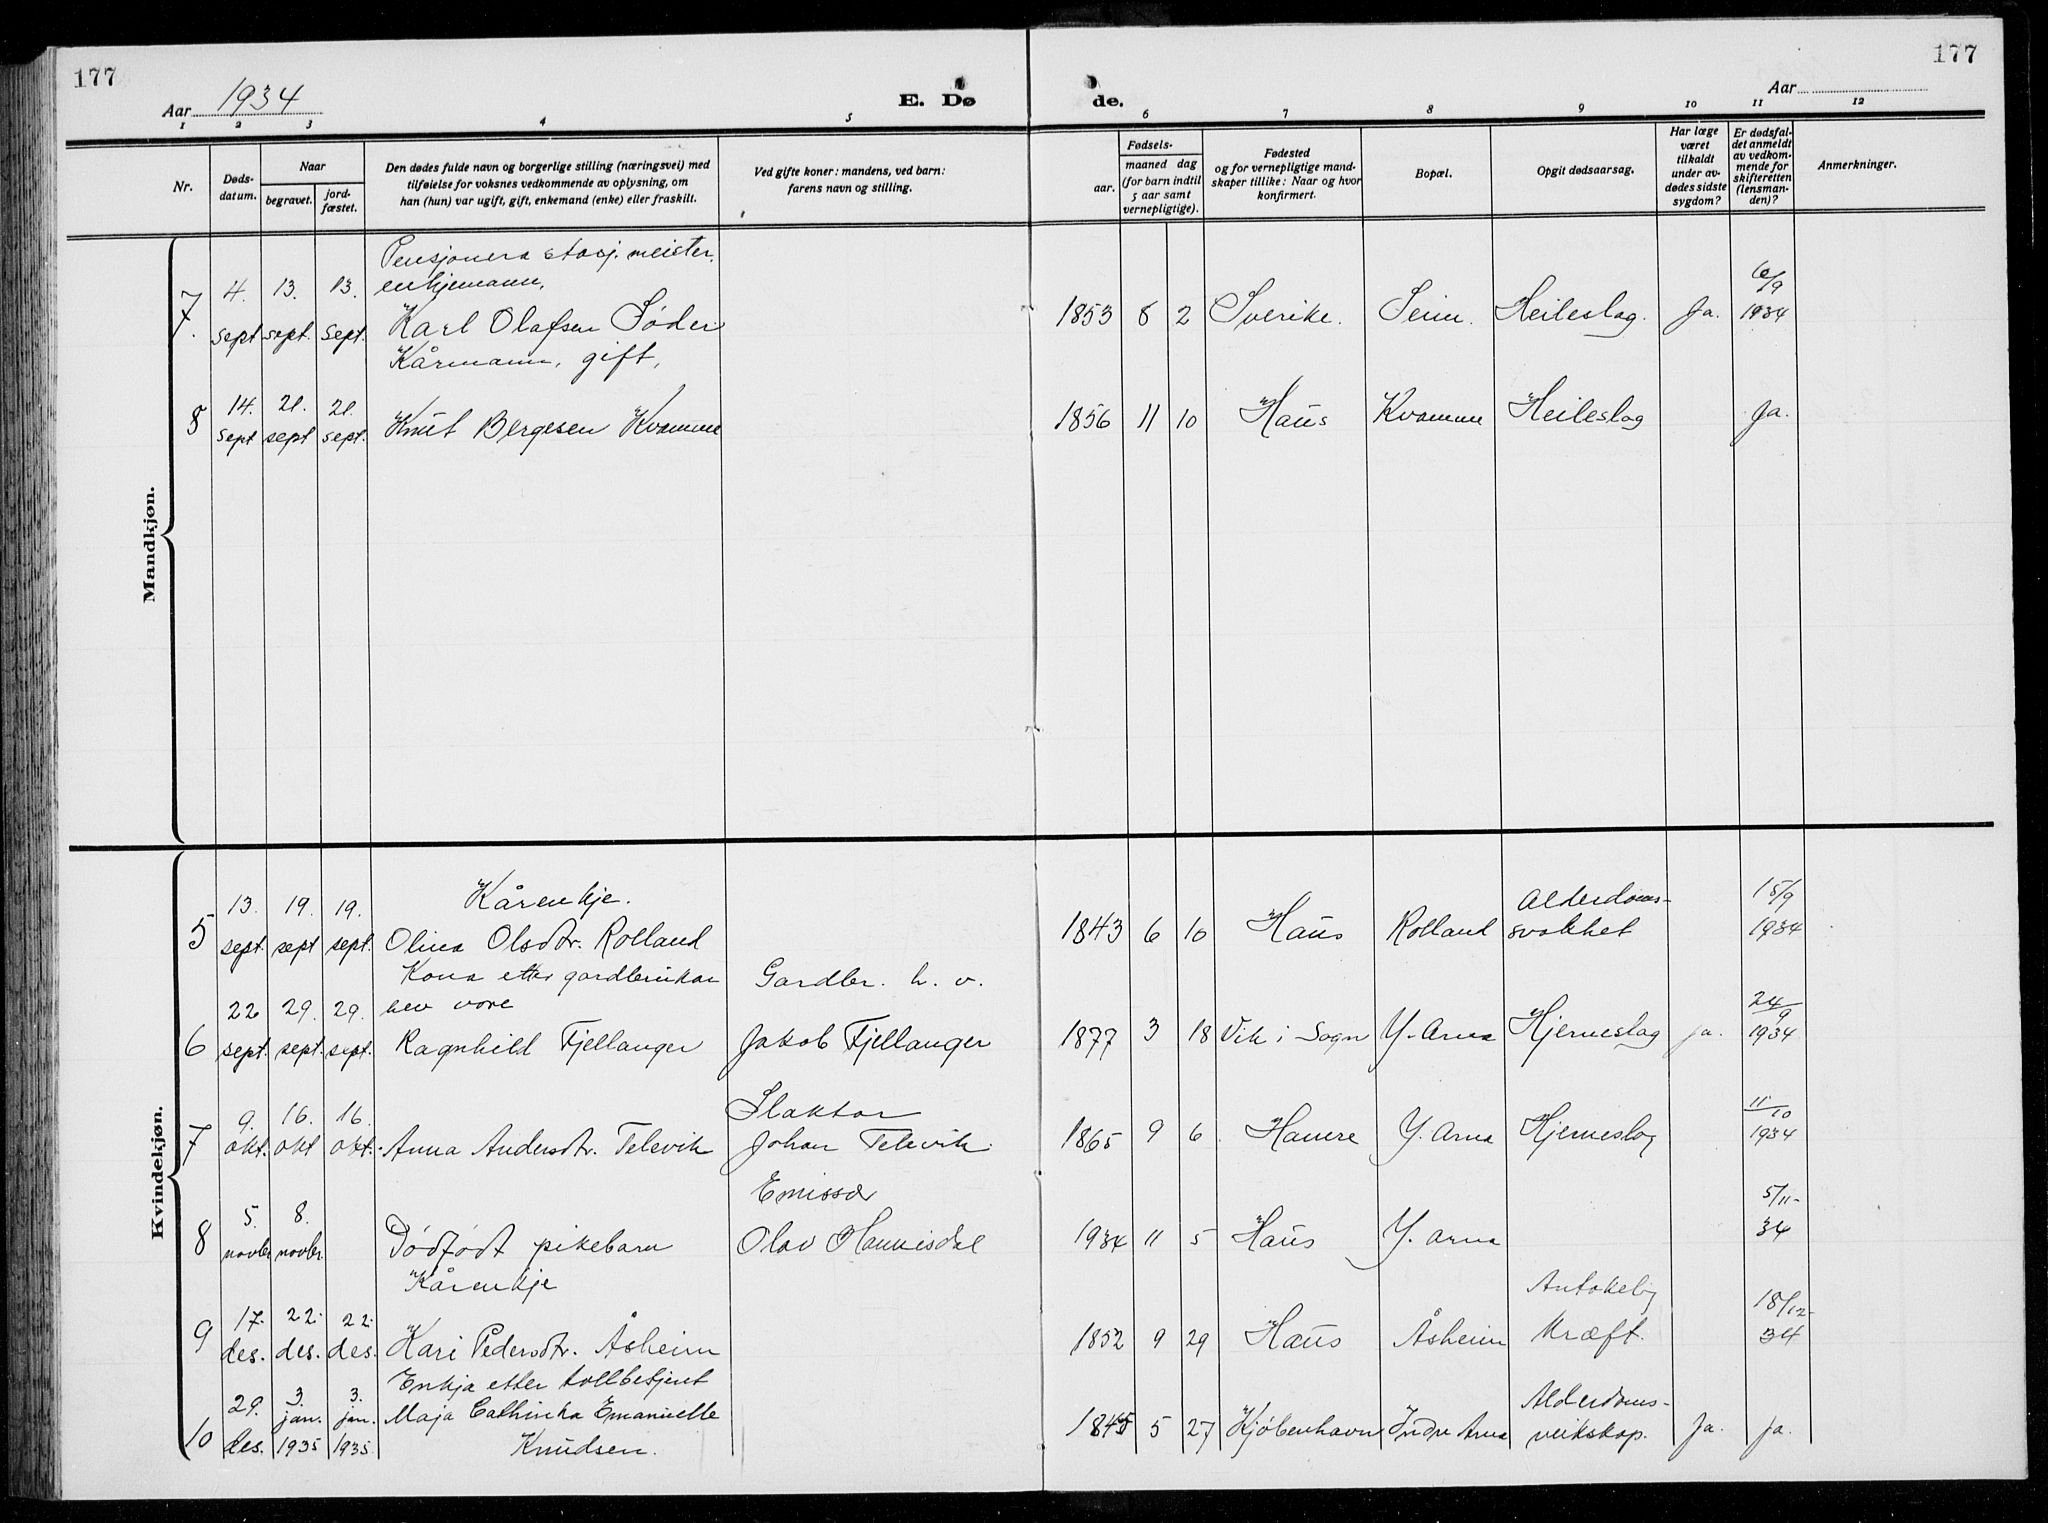 177
177
Aar 1934
E. Dø
de.
Aar
1 2 3 4 5 6 7 8 9 10 11 12
Nr.
Døds-
datum.
Naar
begravet.
jord-
fæstet.
Den dødes fulde navn og borgerlige stilling (næringsvei) med
tilføielse for voksnes vedkommende av oplysning, om
han (hun) var ugift, gift, enkemand (enke) eller fraskilt.
Ved gifte koner: mandens, ved barn:
farens navn og stilling.
Fødsels-
aar.
maaned dag
(for barn indtil
5 aar samt
vernepligtige).
Fødested
og for vernepligtige mand-
skaper tillike: Naar og hvor
konfirmert.
Bopæl.
Opgit dødsaarsag.
Har læge
været
tilkaldt
under av-
dødes sidste
sygdom?
Er dødsfal-
det anmeldt
av vedkom-
mende for
skifteretten
(lensman-
den)?
Anmerkninger.
Mandkjøn.
Pensjonera stasj. meister,
4. 13. 13. enkjemann, 6/9
7. sept sept. sept. Karl Olafsen Söder 1853 8 2 Sverike. Seim. Heileslag. Ja. 1934
Kårmann, gift,
14. 21. 21.
8 sept sept sept. Knut Bergesen Kvamme 1856 11 10 Haus Kvamme Heileslag Ja.
Kvindekjøn.
13. 19. 19. Kårenkje. Alderdoms- 15/9
5 sept. sept sept. Olina Olsdtr. Rolland 1843 6 10 Haus Rolland svakhet 1934
Kona etter gardbrukar Gardbr. h. v.
22 29. 29. nev vore 24/9
6 sept. sept. sept. Ragnhild Fjellanger Jakob Fjellanger 1877 3 18 Vik i Sogn Y. Arna Hjerneslag ja. 1934
9. 16. 16. Slaktar 11/10
7 okt. okt okt. Anna Andersdtr. Televik Johan Televik. 1865 9 6 Hamre Y. Arna Hjerneslag 1934
5. 8. Emissær 5/11-
8 novbr novbr. Dödfödt pikebarn Olav Hannisdal 1934 11 5 Haus Y. Arna 34
Kårenkje
17. 22. 22. Antakelig 18/12-
9 des. des. des. Kari Pedersdtr. Åsheim 1852 9 29 Haus Åsheim Kræft. 34
Enkja etter tollbetjent
29. 3. 3. Alderdoms-
jan. jan. Maja Cathinka Emanuelle
10 des. 1935 1935. Knudsen. 1845 5 27 Kjøbenhavn Indre Arna veikskap. Ja. Ja.